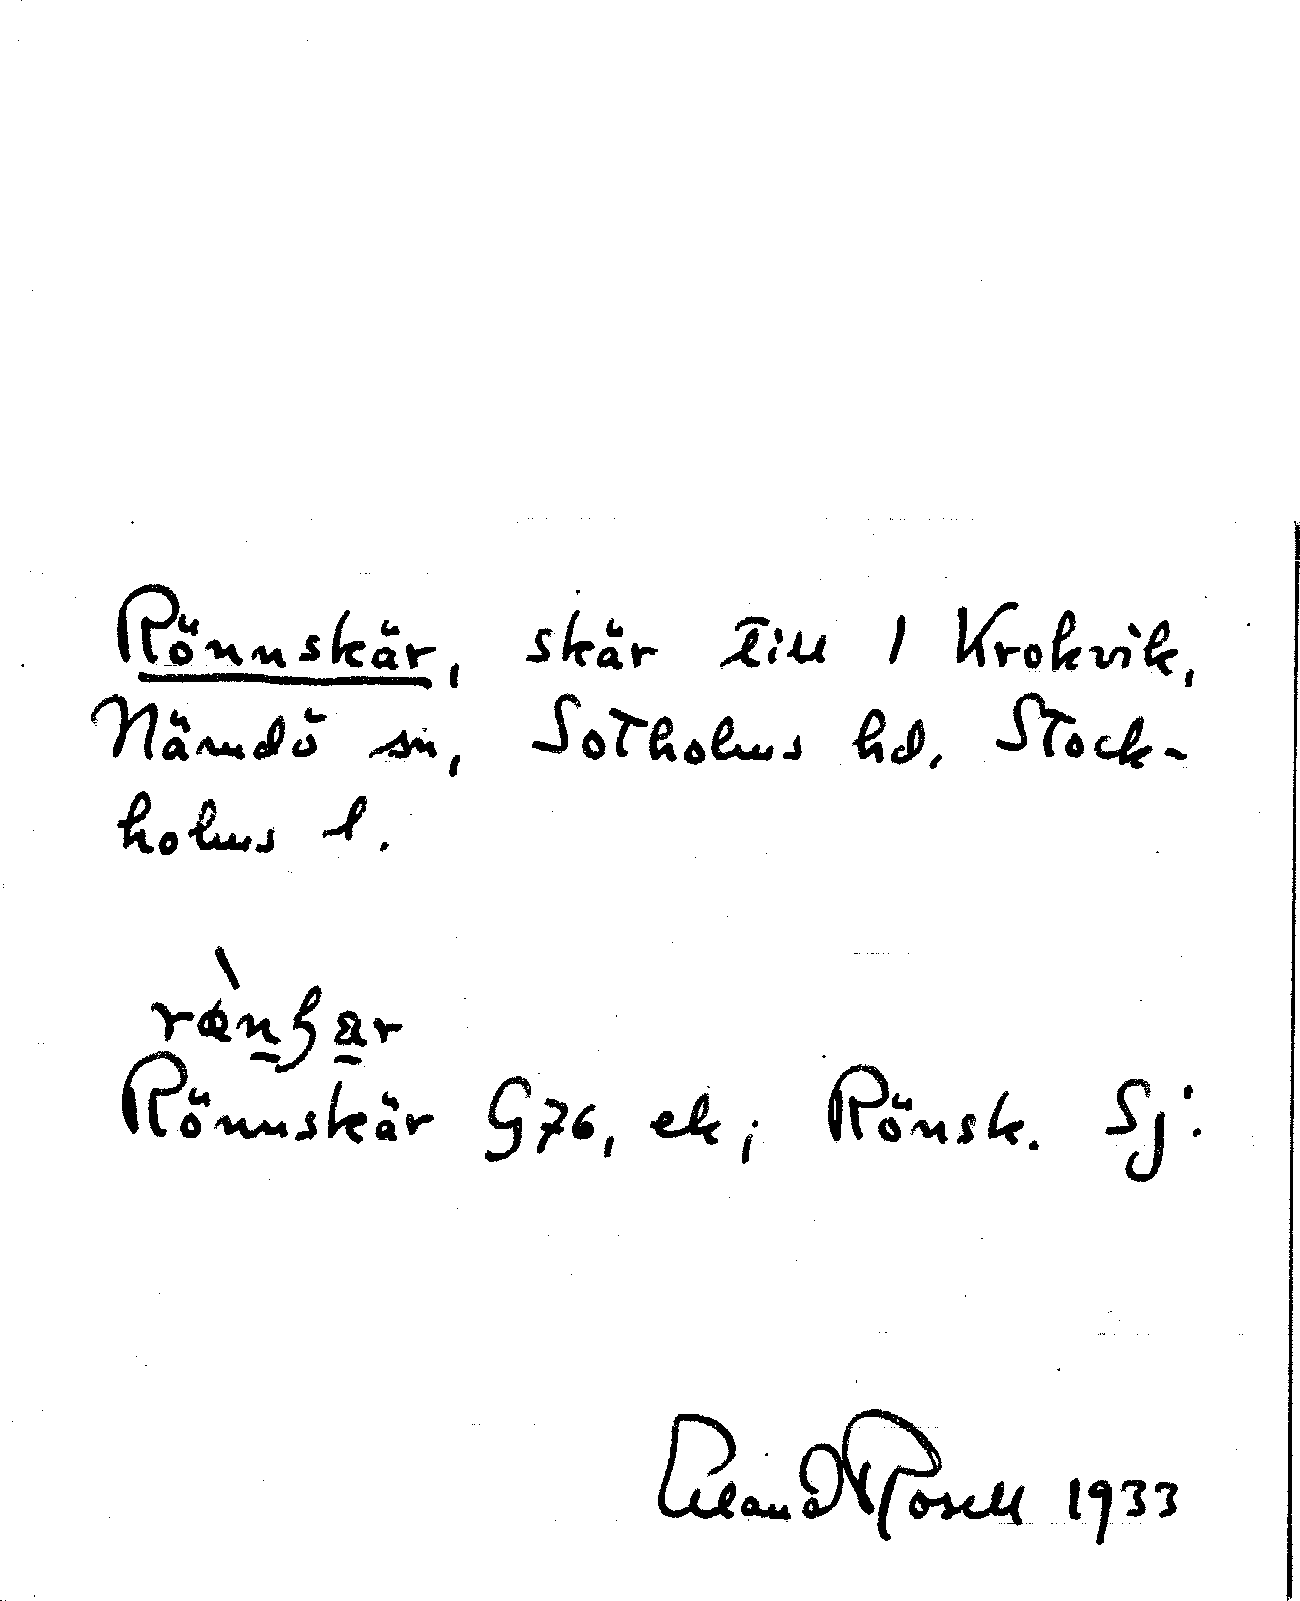 Rönnskär, skär till 1 Krokvik,
Nämdö sn, Sotholms hd. Stock-
holms l.
Rönnskär G76, ek; Rönsk. Sj:
Erland Rosell 1933